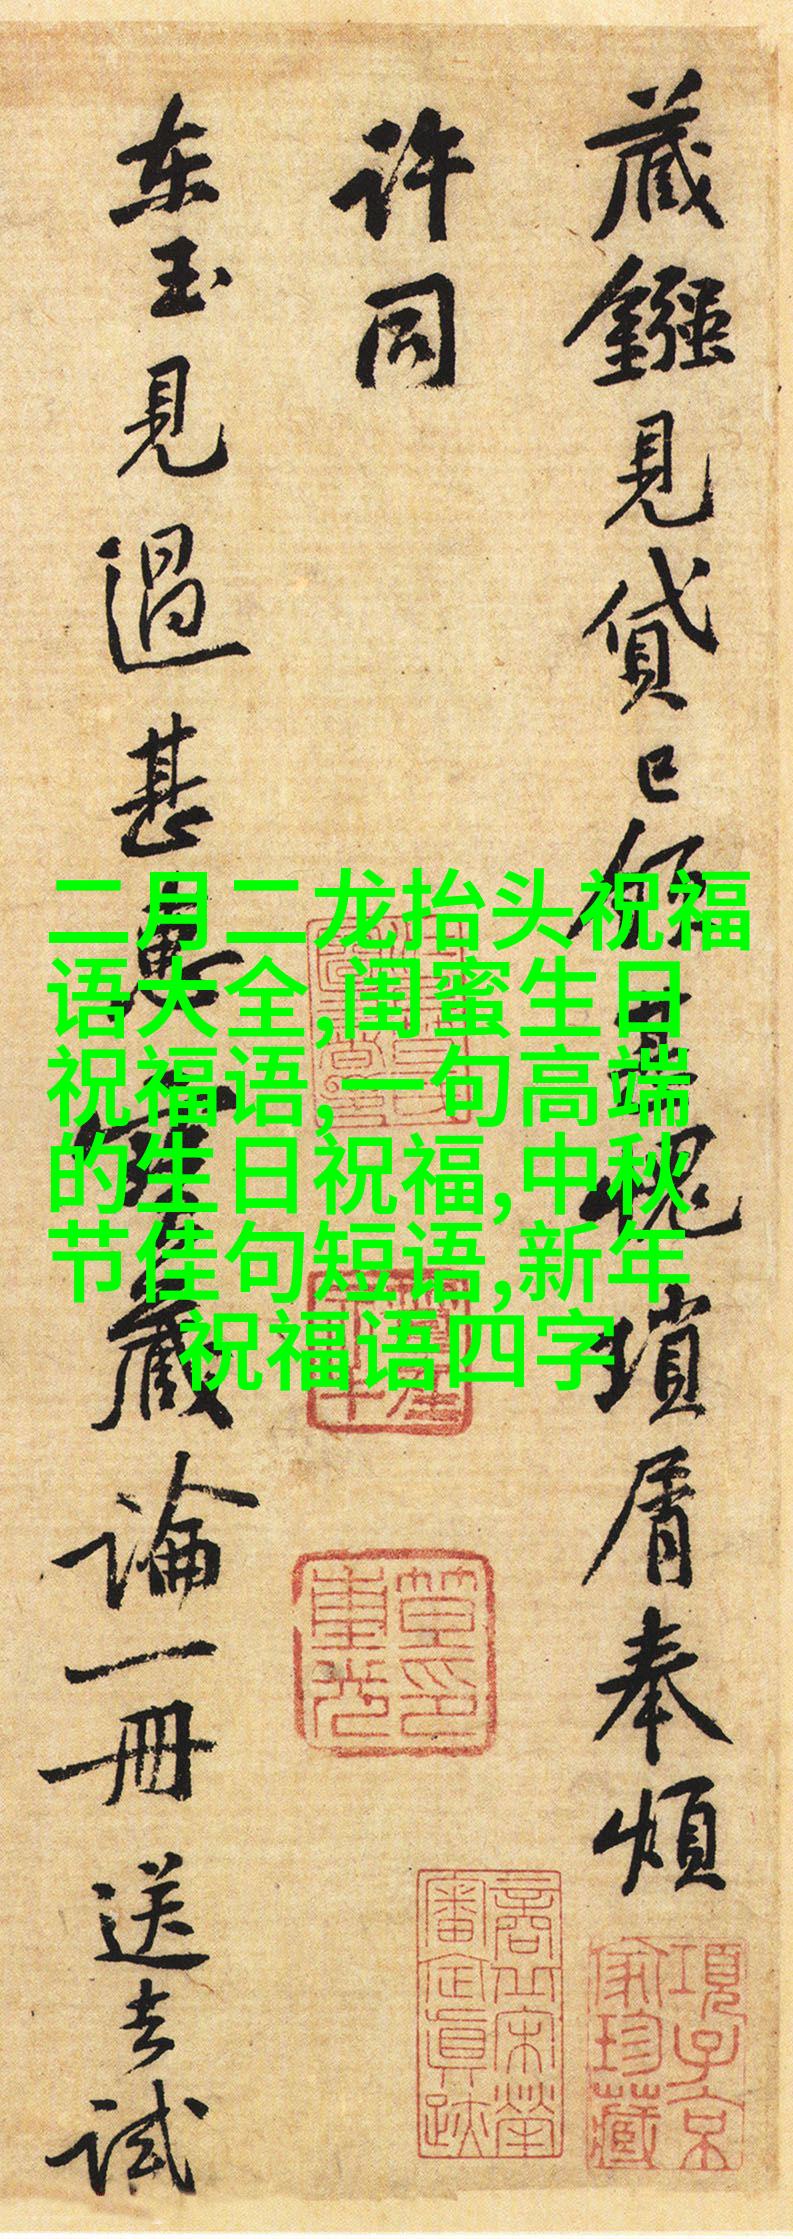 藏鏹見貸已領甚愧瑣屑奉煩
许同
东玉見過甚惠
藏論一冊送去試
二月二龙抬头祝福
语大全,闺蜜生日
祝福语,一句高端
的生日祝福,中秋
节佳句短语,新年
祝福语四字
項子京
家珍藏